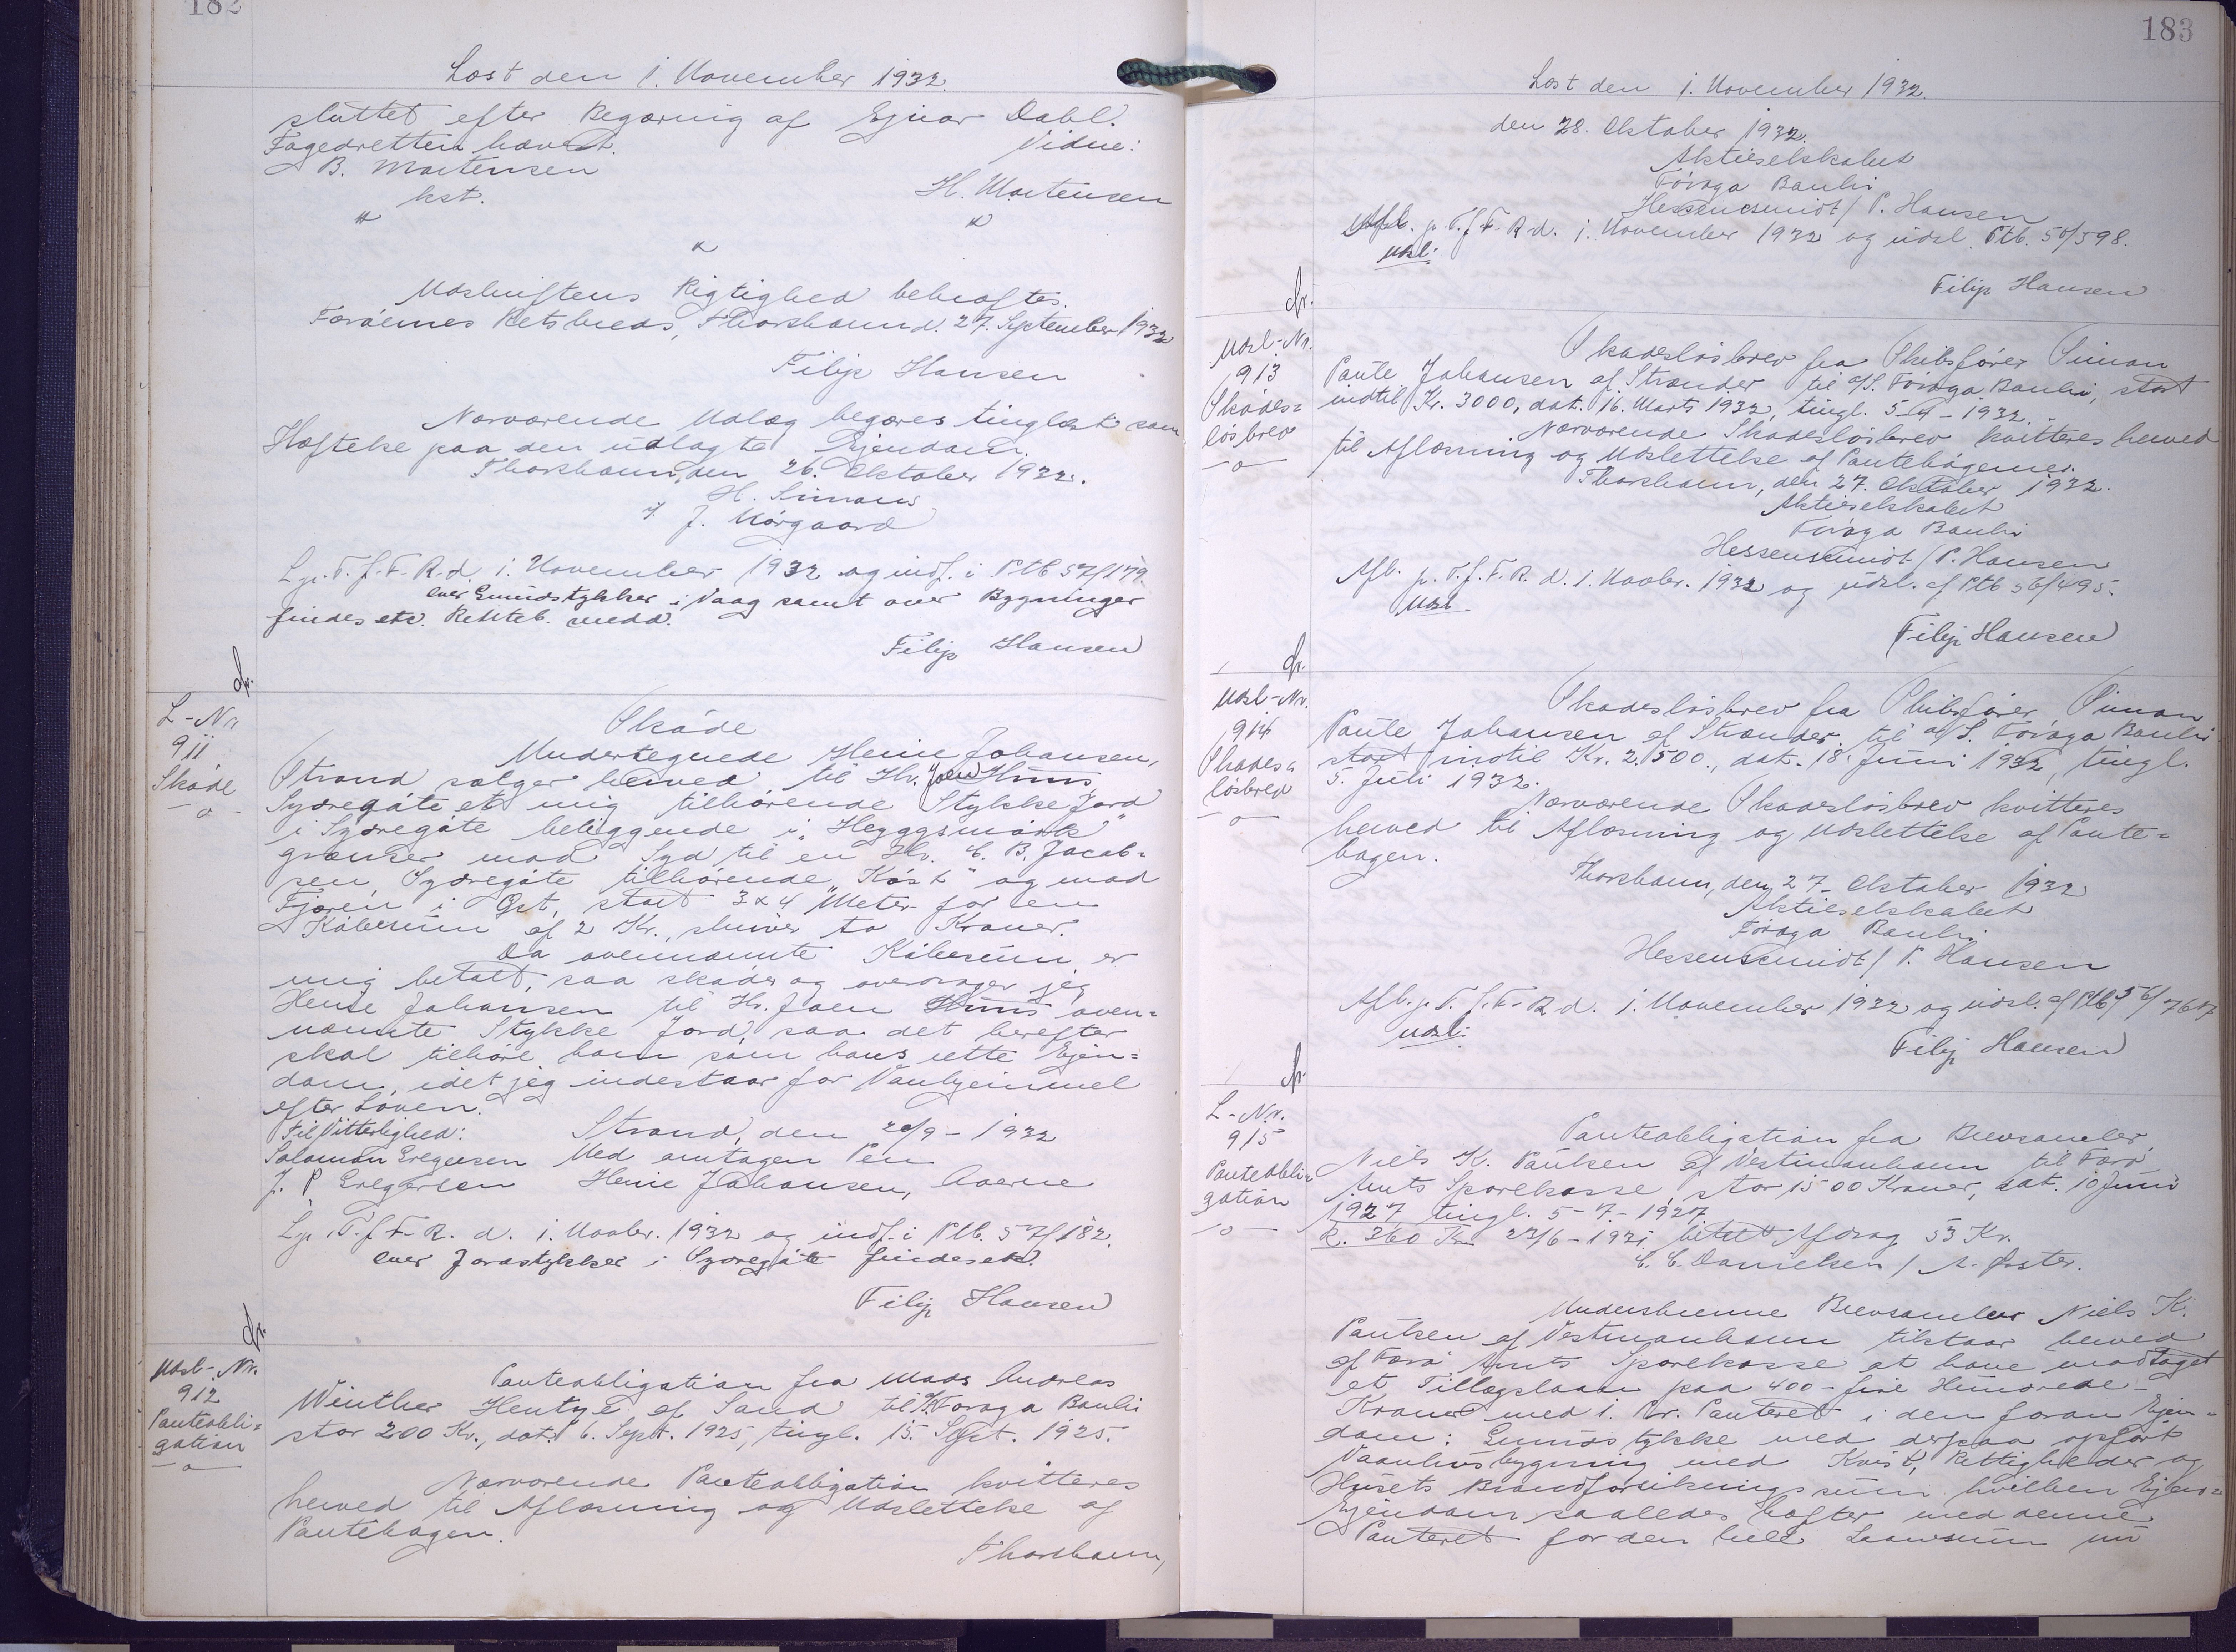 182
Læst den 1. November 1932.
sluttet efter Begæring af Ejnar Dahl.
Fogedretten hævet. Vidne:
B. Mortensen
kst. H. Mortensen
Udskriftens Rigtighed bekræftes.
Færöernes Retskreds, Thorshavn d. 27. September 1932
Filip Hansen
Nærværende Udlæg begæres tinglæst som
Hæftelse paa den udlagte Ejendom.
Thorshavn, den 26. Oktober 1932.
H. Simans
J. Nórgaard
L. p. T. f. F. R. d. 1. November 1932 og indf. i Ptb 57/179
over Grundstykker i Vaag samt over Bygninger
findes etc. Realteb. medd.
Filip Hansen
L-Nr
911
Skóde
Skóde
Undertegnede Heine Johansen,
Strand sælger herved til Hr. Joen
Syðregóte et mig tilhörende Stykke Jord
i Syðregóte beliggende i "Heyggsmörk"
grænser mod Syd til en Hr. C. B. Jacob=
sen, Syðregóte tilhörende "Köst" og mod
Fjæren i Öst, stort 3 x 4 Meter for en
Köbesum af 2 Kr., skriver to Kroner.
Da ovennævnte Köbesum er
mig betalt, saa skóder og overdrager jeg
Heine Johansen til Hr. Joen oven=
nævnte Stykke Jord, saa det herefter
skal tilhöre ham som hans rette Ejen=
dom, idet jeg indestaar for Vanhjemmel
efter Loven.
Til Vitterlighed: Strand, den 20/9 - 1932
Solomon Gregersen Med antagen Pen
J. P. Gregersen Heine Johansen,
L. p. T. f. F. R. d. 1. Novbr. 1932 og indf. i Ptb. 57/182.
over Jordstykker i Syðregóte findes etc.
Filip Hansen
Udsl-Nr.
912
Panteobli=
gation
Panteobligation fra Mads Andreas
Winther Hentze af Sand til A/S Föroya Banki
stor 200 Kr., dat. 6. Sept. 1925, tingl. 15. Sept. 1925.
Nærværende Panteobligation kvitteres
herved til Aflæsning og Udslettelse af
Pantebogen.
Thorshavn,
183
Læst den 1. November 1932.
den 28. Oktober 1932.
Aktieselskabet
Föroya Banki
Hessenschmidt / P. Hansen
Afl. p. T. f. F. R d. 1. November 1932 og udsl. Ptb. 50/598.
Udsl.
Filip Hansen
Udsl-Nr.
913
Skades=
lösbrev
Skadeslösbrev fra Skibsförer Simon
Paute Johansen af Strænder til A/S. Föroya Banki, stort
indtil Kr. 3000, dat. 16. Marts 1932, tingl. 5-4-1932.
Nærværende Skadeslösbrev kvitteres herved
til Aflæsning og Udslettelse af Pantebögerne.
Thorshavn, den 27. Oktober 1932.
Aktieselskabet
Föroya Banki
Hessenschmidt / P. Hansen
Afl. p. T. f. F. R. d. 1. Novbr. 1932 og udsl. af Ptb 56/495.
Udsl.
Filip Hansen
Udsl-Nr.
914
Skades=
lösbrev
Skadeslösbrev fra Skibsförer Simon
Paute Johansen af Strænder til A/S. Föroya Banki
stort indtil Kr. 2.500., dat. 18. Juni 1932, tingl.
5. Juli 1932.
Nærværende Skadeslösbrev kvitteres
herved til Aflæsning og Udslettelse af Pante=
bogen.
Thorshavn, den 27. Oktober 1932
Aktieselskabet
Föroya Banki
Hessenschmidt / P. Hansen
Afl. p. T. f. F. R d. 1. November 1932 og udsl. af Ptb 56/
Udsl.
Filip Hansen
L-Nr.
915
Panteobli=
gation
Panteobligation fra Brevsamler
Niels K. Paulsen af Vestmanhavn til Færö
Amts Sparekasse, stor 1500 Kroner, dat. 10 Juni
1927 tingl. 5-7-1927
R. 360 Kr 23/6-1931 betalt Afdrag 53 Kr.
C. C. Danielsen / A. Öster.
Underskrevne Brevsamler Niels K.
Paulsen af Vestmanhavn tilstaar herved
af Færö Amts Sparekasse at have modtaget
et Tillægslaan paa 400 - fire Hundrede -
Kroner med 1. Pr. Panteret i den foran Ejen=
dom: Grundstykke med derpaa opfört
Vaanhusbygning med Kvist, Rettigheder og
Husets Brandforsikringssum hvilken Ejen=
Ejendom saaledes hæfter med denne
Panteret for den hele Laanesum nu